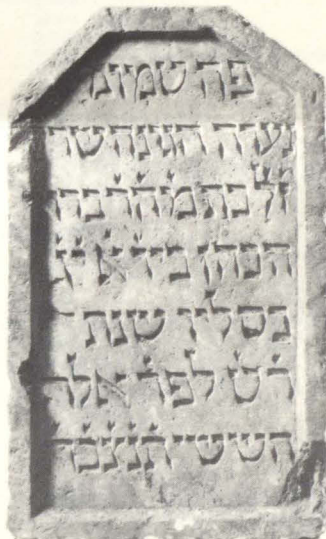 פה טמונה
נערה הגונה שרה
ז״ל בת מהר״
הכהן ביו׳ א׳
כסליו שנת
ר״ט לפ״ר אלף
הששי תנצבה